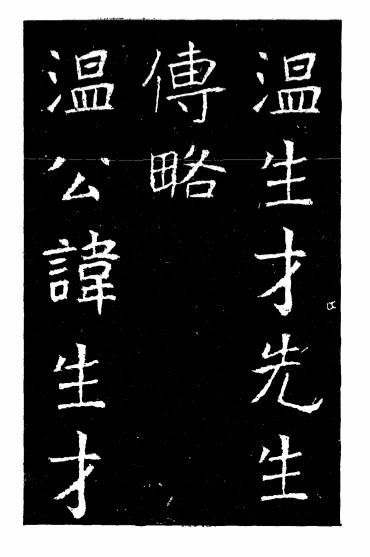 温生才先生
傳略
温公諱生才